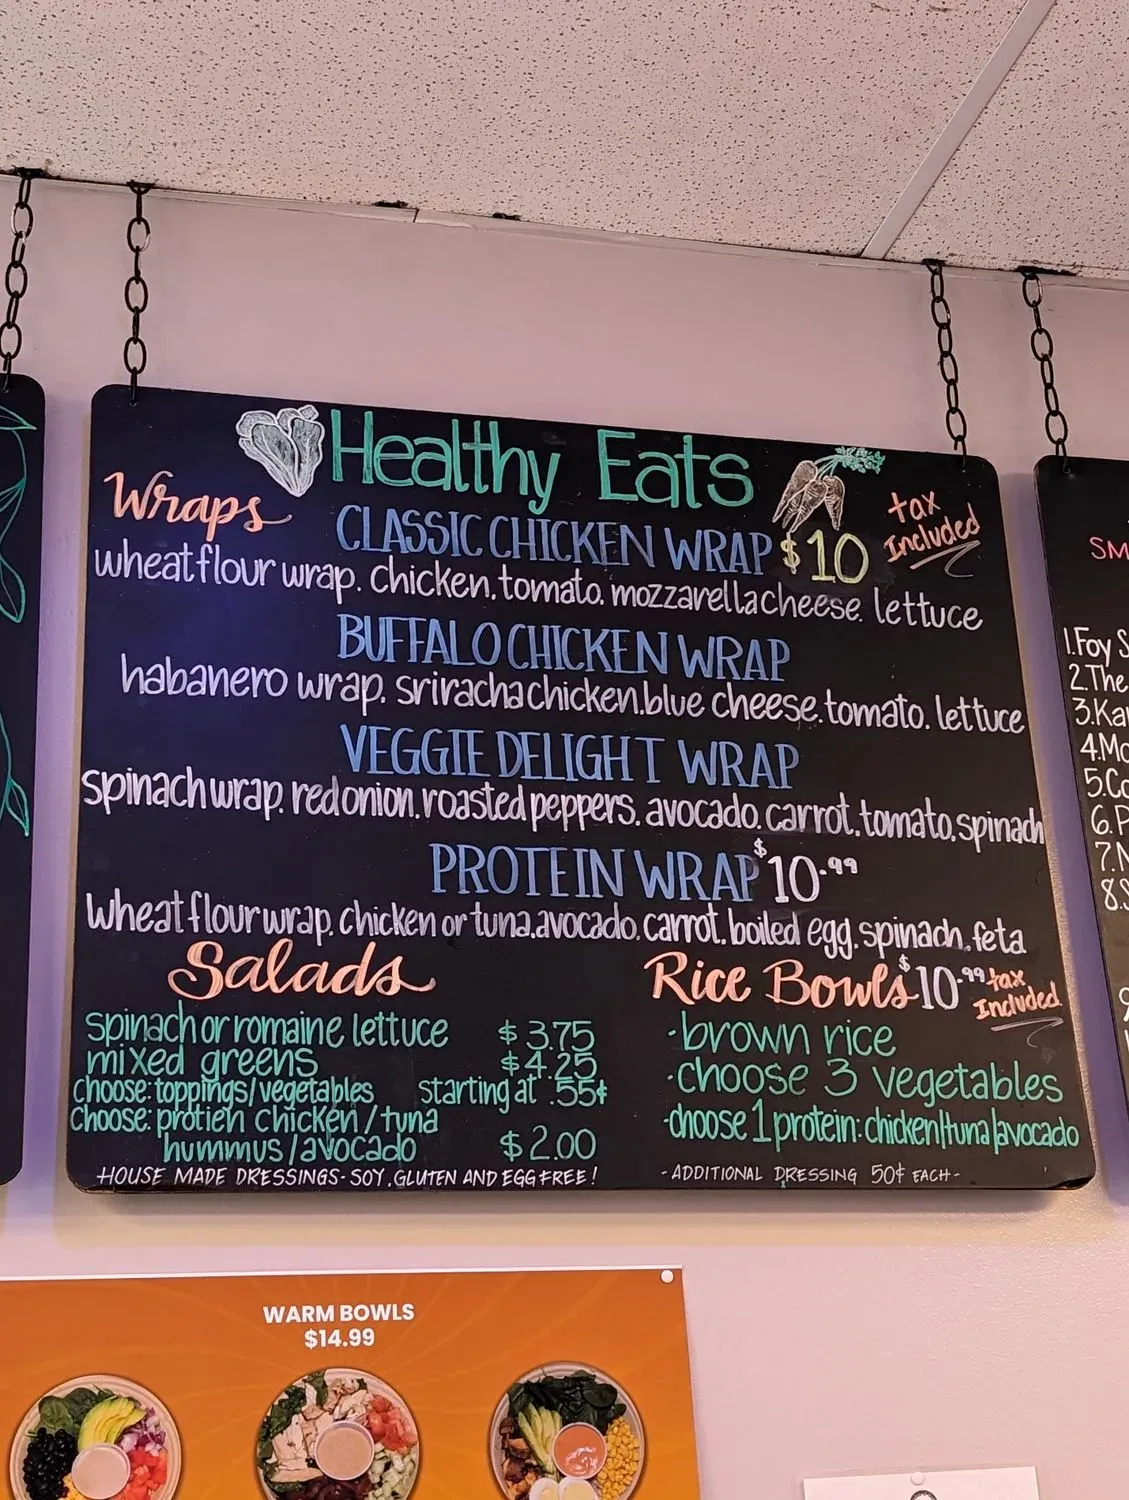 Healthy Eats
Wraps
CLASSIC CHICKEN WRAP $10 tax Included
wheat flour wrap. chicken. tomato. mozzarella cheese. lettuce
BUFFALO CHICKEN WRAP
habanero wrap. sriracha chicken. blue cheese. tomato. lettuce
VEGGIE DELIGHT WRAP
spinach wrap. red onion. roasted peppers. avocado. carrot. tomato. spinach
PROTEIN WRAP $10.99
wheat flour wrap. chicken or tuna. avocado. carrot. boiled egg. spinach. feta
Salads
spinach or romaine lettuce $3.75
mixed greens $4.25
choose: toppings/vegetables starting at .55¢
choose: protien chicken/tuna
hummus/avocado $2.00
HOUSE MADE DRESSINGS - SOY, GLUTEN AND EGG FREE!
Rice Bowls $10.99 tax Included
·brown rice
·choose 3 vegetables
·choose 1 protein: chicken|tuna|avocado
- ADDITIONAL DRESSING 50¢ EACH -
1.Foy
2.The
3.Ka
4.Mo
5.Co
6.P
7.N
8.S
WARM BOWLS
$14.99